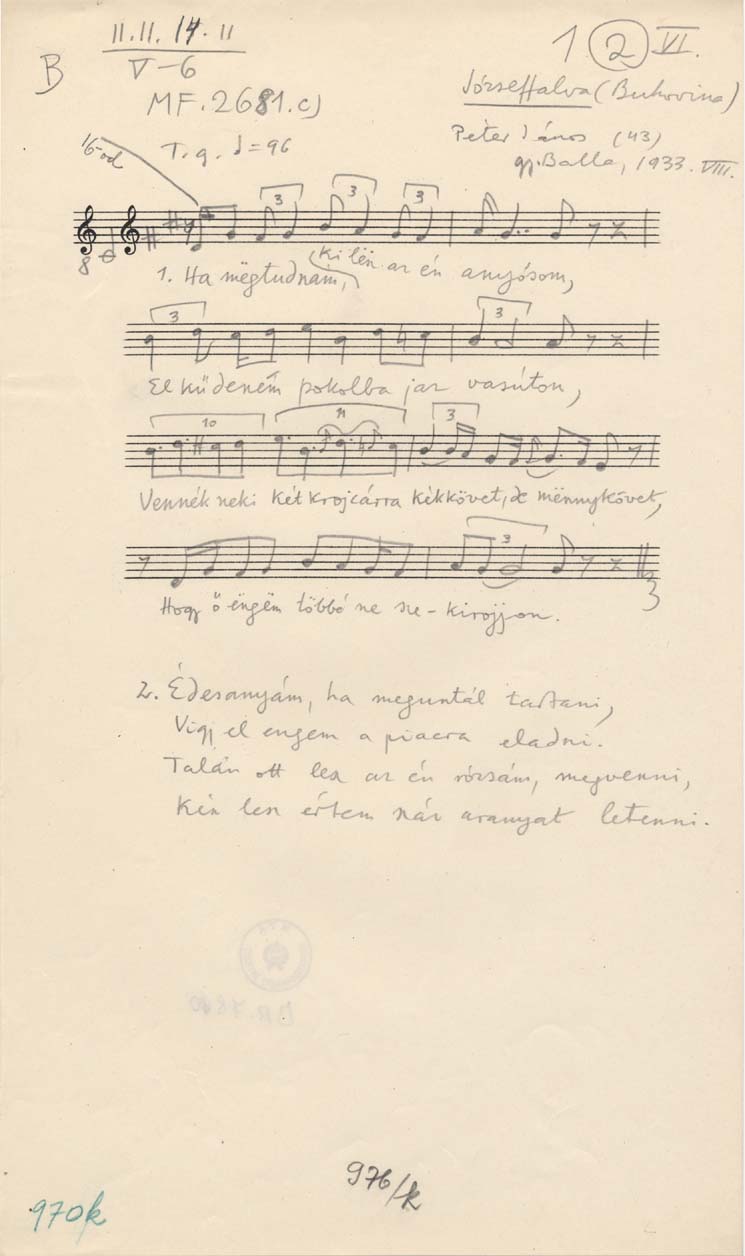 11.11.14.11
V-6
B
MF.2681.c)
1 2 VI.
Józseffalva (Bukovina)
Péter János (43)
gy. Balla, 1933. VIII.
16-od
T. g. = 96
3 3 3
8
1. Ha mëgtudnám, ki lën az én anyósom,
3 3
El küdeném pokolba jar vasúton,
10 11 3
Vennék neki két krojcárra kékkövet, de mënnykövet,
3
Hogy ő ëngëm többé ne
2. Édesanyám, ha meguntál tartani,
Vigy el engem a piacra eladni.
Talán ott lesz az én rózsám, megvenni,
letenni.
976/k
970k